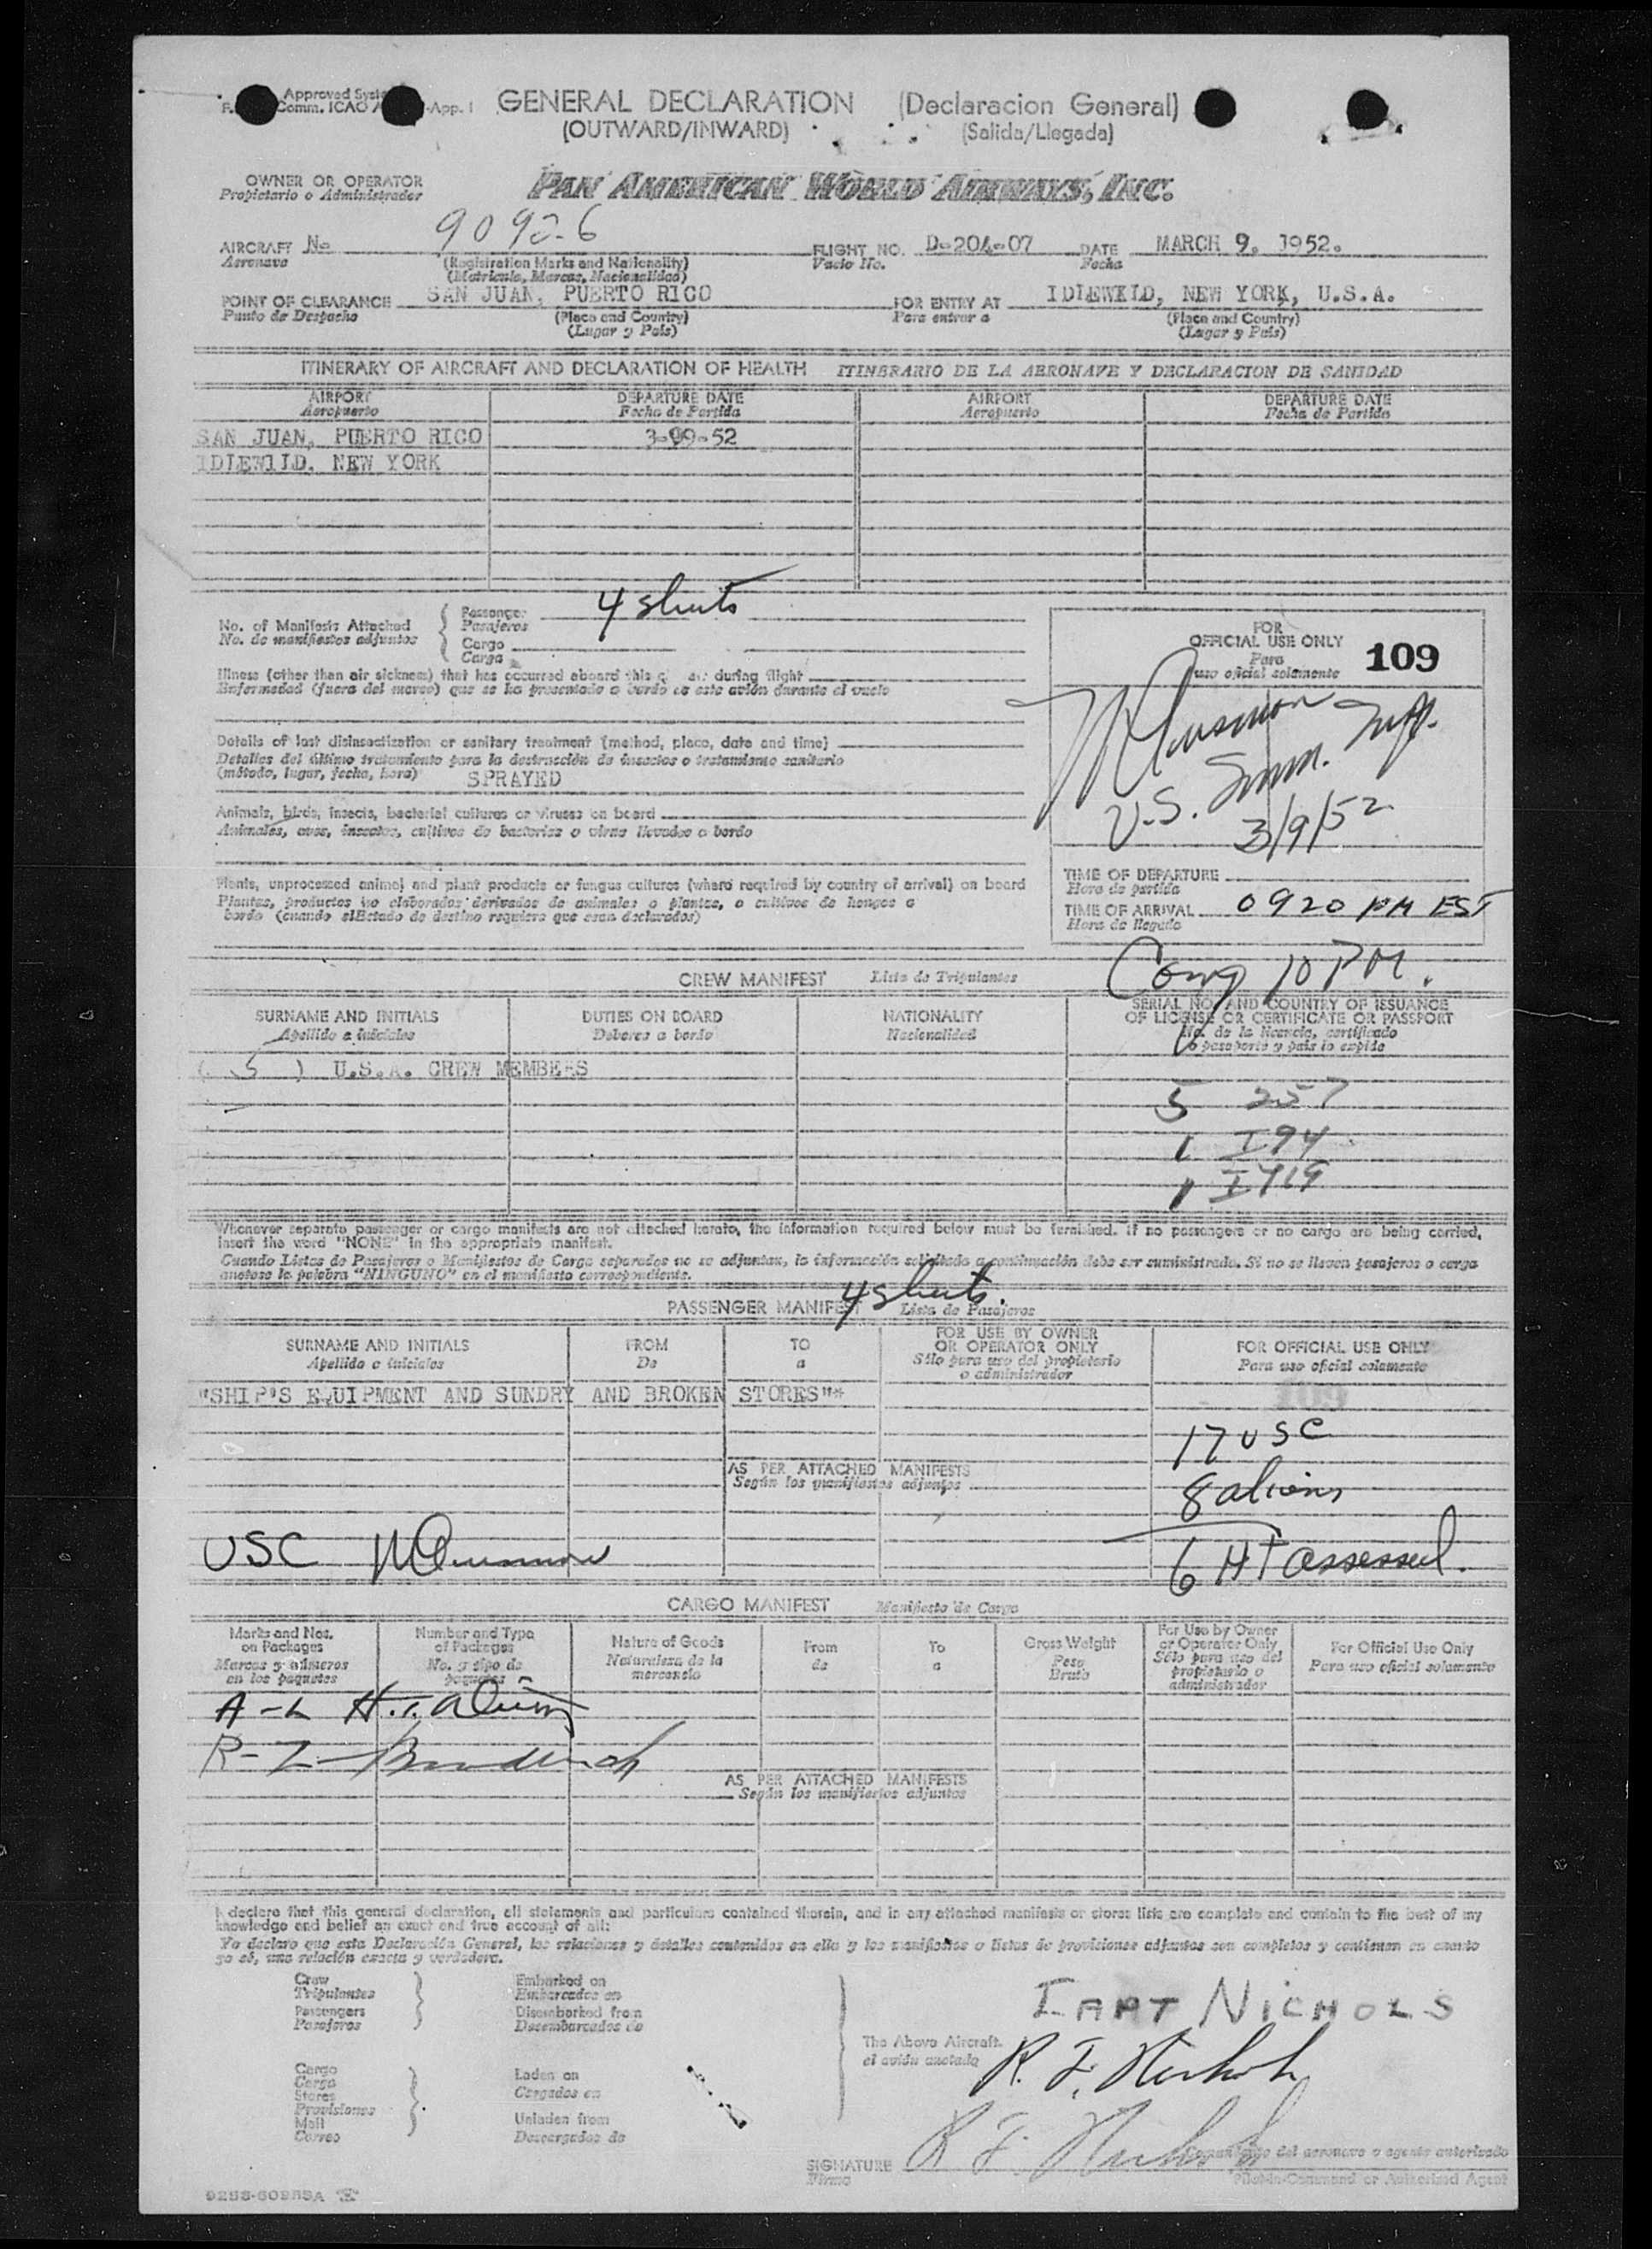 Approved
Comm. ICAO -App. I
GENERAL DECLARATION (Declaracion General)
(OUTWARD/INWARD) (Salida/Llegada)
OWNER OR OPERATOR PAN AMERICAN WORLD AIRWAYS, INC.
Propietario o Administrador
AIRCRAFT No 90926 FLIGHT NO. D-204-07 DATE MARCH 9, 1952.
Aeronave (Registration Marks and Nationality) Vuelo No. Fecha
(Matricula, Marcas, Nacionalidad)
POINT OF CLEARANCE SAN JUAN, PUERTO RICO FOR ENTRY AT IDLEWILD, NEW YORK, U.S.A.
Punto de Despacho (Place and Country) Para entrar a (Place and Country)
(Lugar y Pais) (Lugar y Pais)
ITINERARY OF AIRCRAFT AND DECLARATION OF HEALTH ITINERARIO DE LA AERONAVE Y DECLARACION DE SANIDAD
AIRPORT DEPARTURE DATE AIRPORT DEPARTURE DATE
Aeropuerto Fecha de Partida Aeropuerto Fecha de Partida
SAN JUAN, PUERTO RICO 3-09-52
IDLEWILD, NEW YORK
No. of Manifests Attached Passenger 4 sheets
No. de manifiestos adjuntos Pasajeros
Cargo
Carga
FOR
OFFICIAL USE ONLY 109
Para
uso oficial solamente
Illness (other than air sickness) that has occurred aboard this during flight
Enfermedad (fuera del mareo) que se ha presentado a bordo de este avión durante el vuelo
Details of last disinsectization or sanitary treatment (method, place, date and time)
Detalles del último tratamiento para la destrucción de insectos o tratamiento sanitario
(método, lugar, fecha, hora) SPRAYED
U.S. Imm. Insp.
3/9/52
Animals, birds, insects, bacterial cultures or viruses on board
Animales, aves, insectos, cultivos de bacterias o virus llevados a bordo
Plants, unprocessed animal and plant products or fungus cultures (where required by country of arrival) on board
Plantas, productos no elaborados derivados de animales o plantas, o cultivos de hongos a
bordo (cuando el Estado de destino requiera que sean declarados)
TIME OF DEPARTURE
Hora de partida
TIME OF ARRIVAL 0920 PM EST
Hora de llegada
10 PM.
CREW MANIFEST Lista de Tripulantes
SURNAME AND INITIALS DUTIES ON BOARD NATIONALITY SERIAL NO. AND COUNTRY OF ISSUANCE
OF LICENSE OR CERTIFICATE OR PASSPORT
Apellido e iniciales Deberes a bordo Nacionalidad No. de la licencia, certificado
o pasaporte y país lo expide
( 5 ) U.S.A. CREW MEMBERS
5 257
1 I94
1 I419
Whenever separate passenger or cargo manifests are not attached hereto, the information required below must be furnished. If no passengers or no cargo are being carried,
insert the word "NONE" in the appropriate manifest.
Cuando Listas de Pasajeros o Manifiestos de Carga separados no se adjuntan, la información solicitada a continuación debe ser suministrada. Si no se llevan pasajeros o carga
anotese la palabra "NINGUNO" en el manifiesto correspondiente.
4 sheets.
PASSENGER MANIFEST Lista de Pasajeros
SURNAME AND INITIALS FROM TO FOR USE BY OWNER
OR OPERATOR ONLY FOR OFFICIAL USE ONLY
Apellido e iniciales De a Sólo para uso del propietario
o administrador Para uso oficial solamente
"SHIP'S EQUIPMENT AND SUNDRY AND BROKEN STORES"* 109
17 USC
AS PER ATTACHED MANIFESTS
Según los manifiestos adjuntos
8 aliens
USC
6 HT assessed.
CARGO MANIFEST Manifiesto de Carga
Marks and Nos.
on Packages
Marcas y números
en los paquetes
Number and Type
of Packages
No. y tipo de
paquetes
Nature of Goods
Naturaleza de la
mercancia
From
de
To
a
Gross Weight
Peso
Bruto
For Use by Owner
or Operator Only
Sólo para uso del
propietario o
administrador
For Official Use Only
Para uso oficial solamente
A-L H.T. aliens
R-Z
AS PER ATTACHED MANIFESTS
Según los manifiestos adjuntos
I declare that this general declaration, all statements and particulars contained therein, and in any attached manifests or stores lists are complete and contain to the best of my
knowledge and belief an exact and true account of all:
Yo declaro que esta Declaración General, las relaciones y detalles contenidos en ella y los manifiestos o listas de provisiones adjuntos son completos y contienen en cuanto
yo sé, una relación exacta y verdadera.
Crew Embarked on
Tripulantes Embarcados en
Passengers Disembarked from
Pasajeros Desembarcados de
NICHOLS
The Above Aircraft
el avión anotado
Cargo
Carga Laden on
Stores Cargados en
Provisiones
Mail Unladen from
Correo Descargados de
SIGNATURE
Firma
del aeronave o agente autorizado
Pilot-in-Command or Authorized Agent